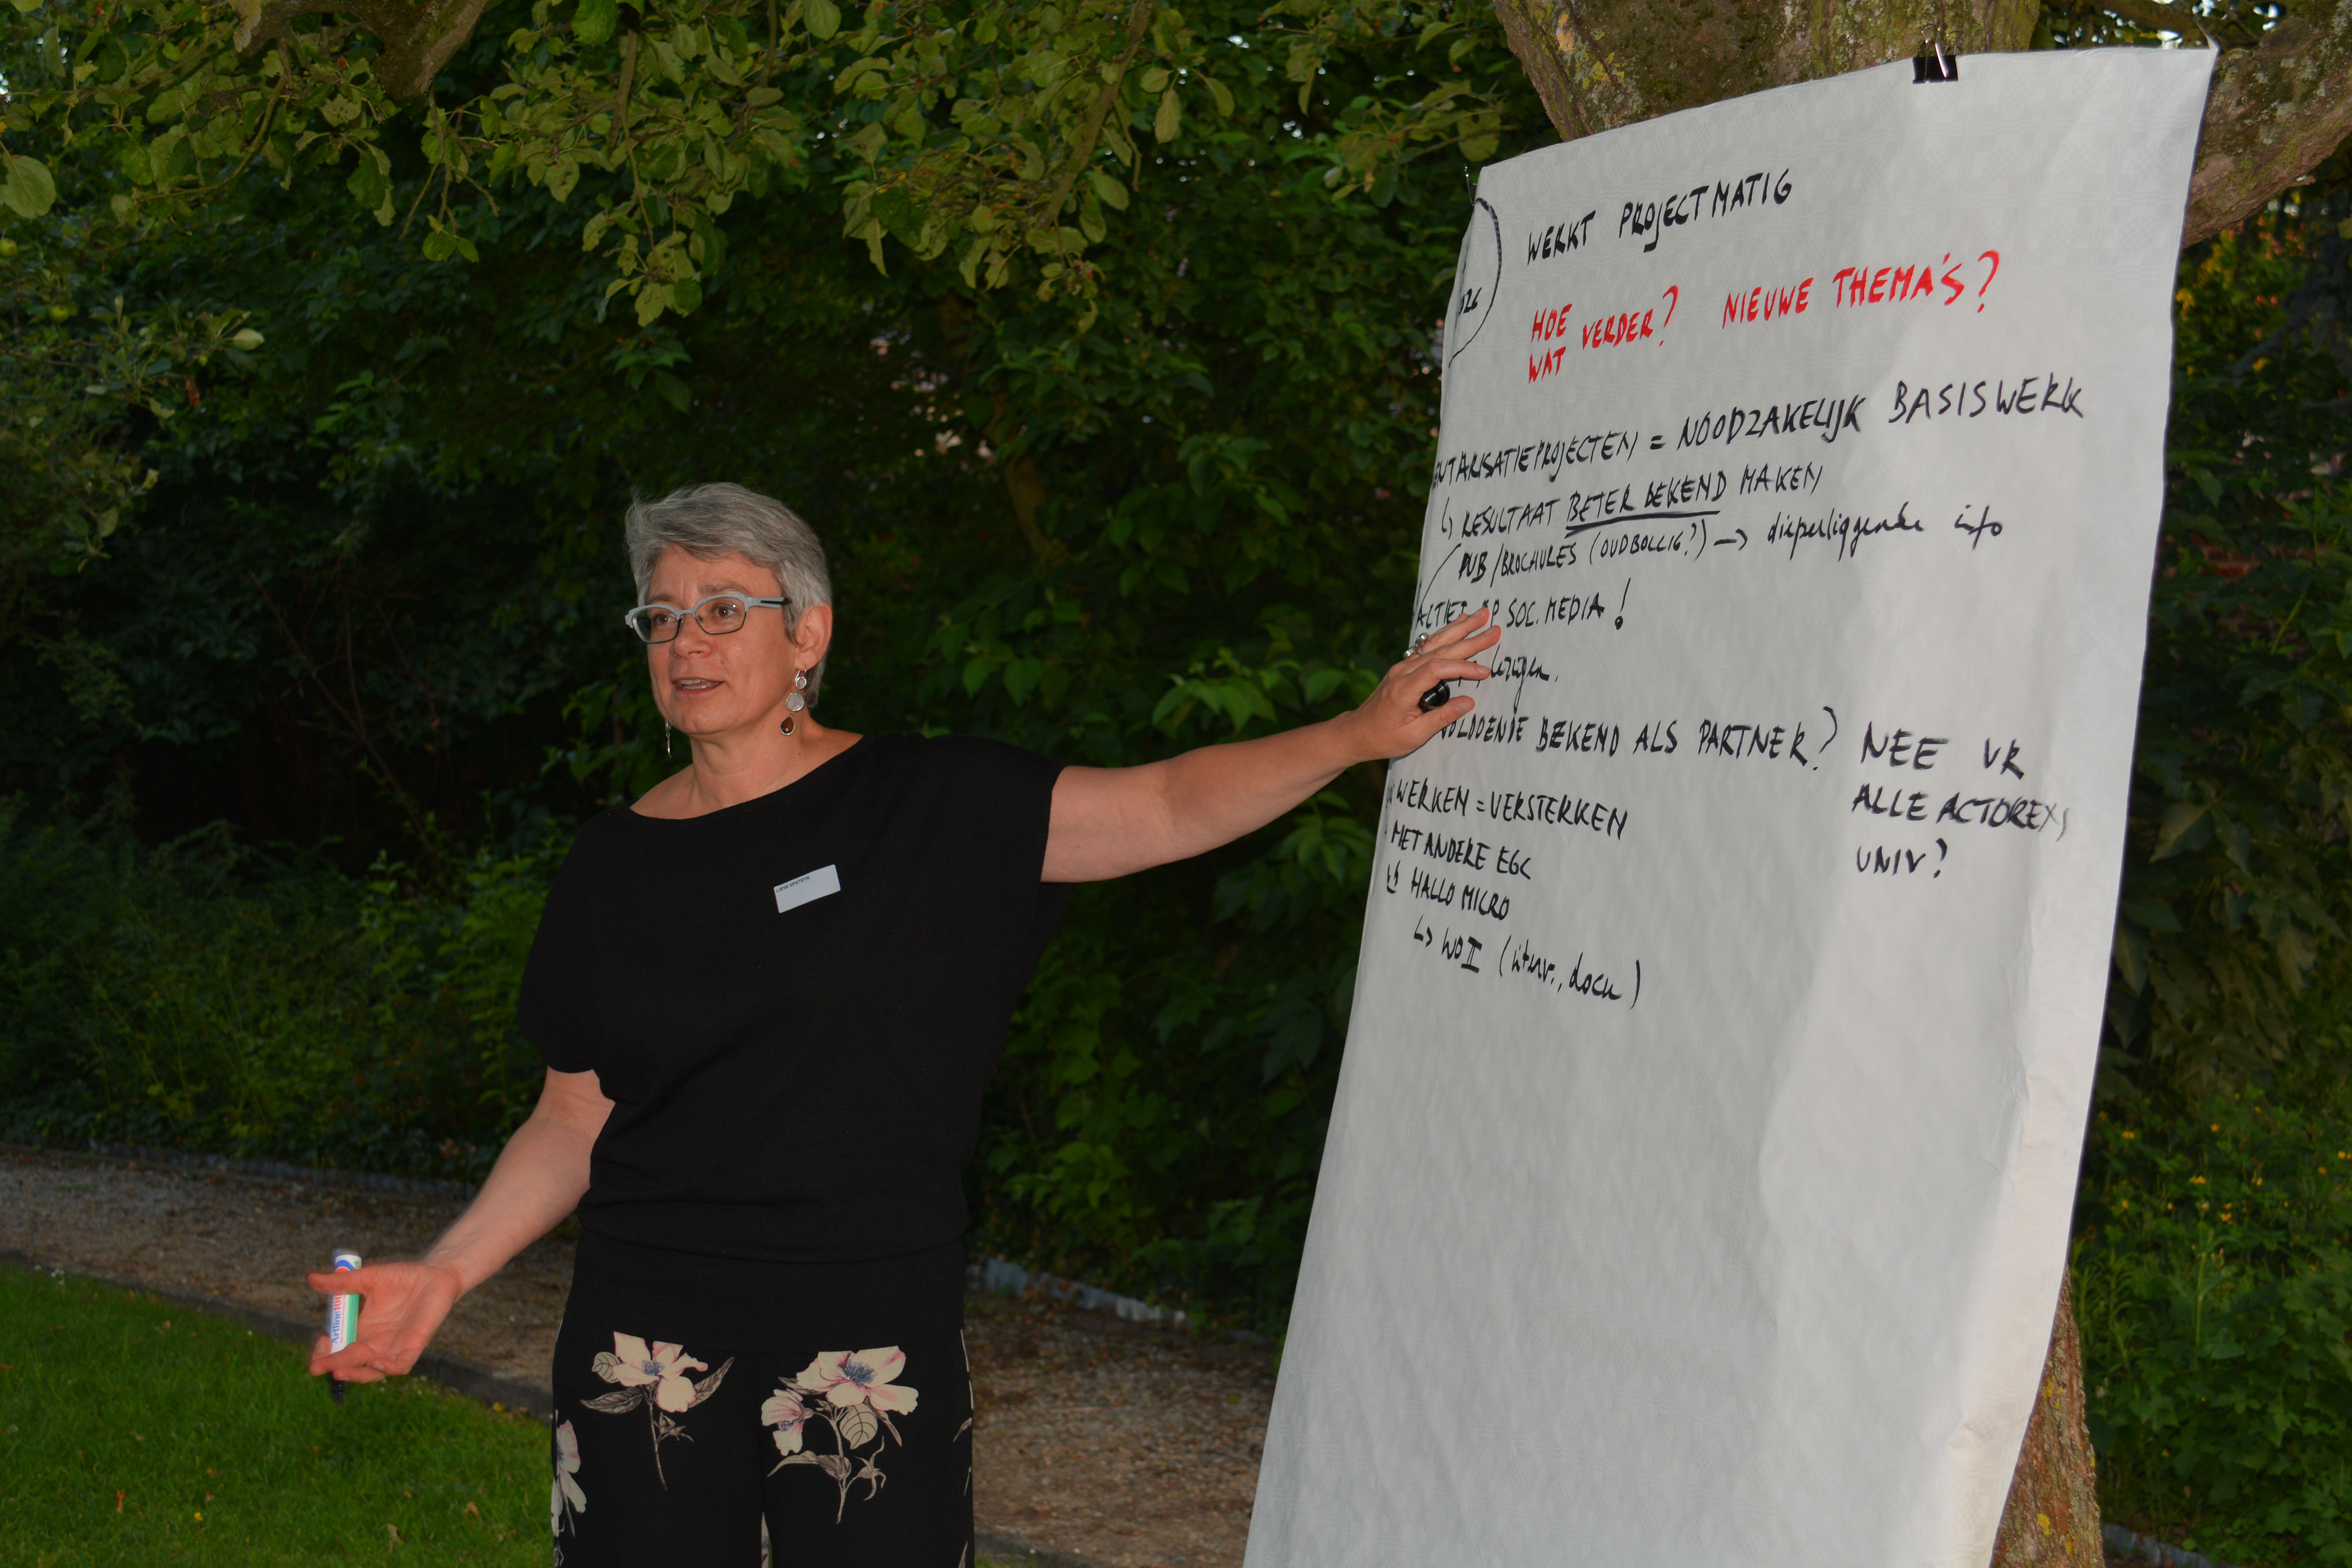 WERKT PROJECTMATIG
HOE VERDER? NIEUWE THEMA'S?
WAT
NTARISATIEPROJECTEN = NOODZAKELIJK BASISWERK
↳ RESULTAAT BETER BEKEND MAKEN
PUB/BROCHURES (OUDBOLLIG?) → dieperliggende info
ACTIEF OP SOC. MEDIA!
VOLDOENDE BEKEND ALS PARTNER? NEE VR
ALLE ACTOREN
UNIV?
WERKEN = VERSTERKEN
MET ANDERE EGC
↳ HALLO MICRO
↳ WO II (interv., docu)
LIEVE OPSTEYN
Artline